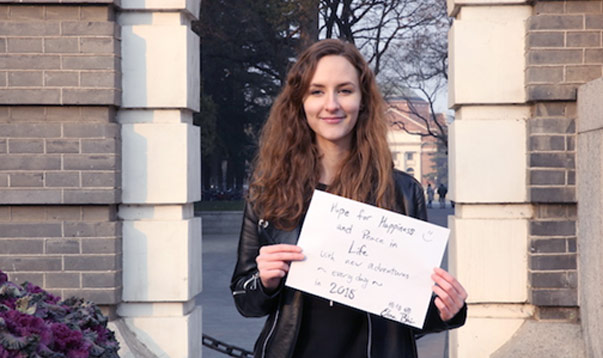 Hope for Happiness :)
and Peace in
Life
with new adventures
~ everyday ~
in 2018